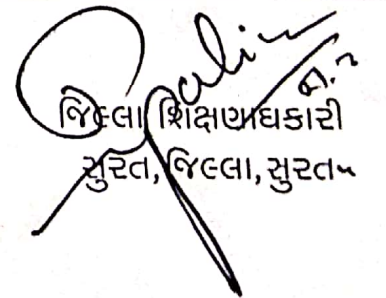 જિલ્લા શિક્ષણાધિકારી
સુરત, જિલ્લા, સુરત